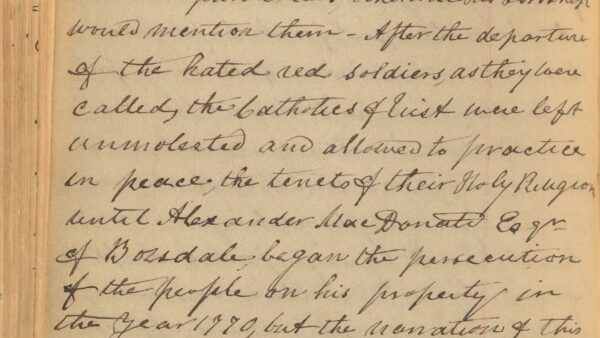 would mention them - After the departure
of the hated red soldiers, as they were
called, the Catholics of Uist were left
unmolested and allowed to practice
in peace, the tenets of their Holy Religion
until Alexander MacDonald Esqr
of Boisdale, began the persecution
of the people on his property in
the Year 1770, but the narration of this